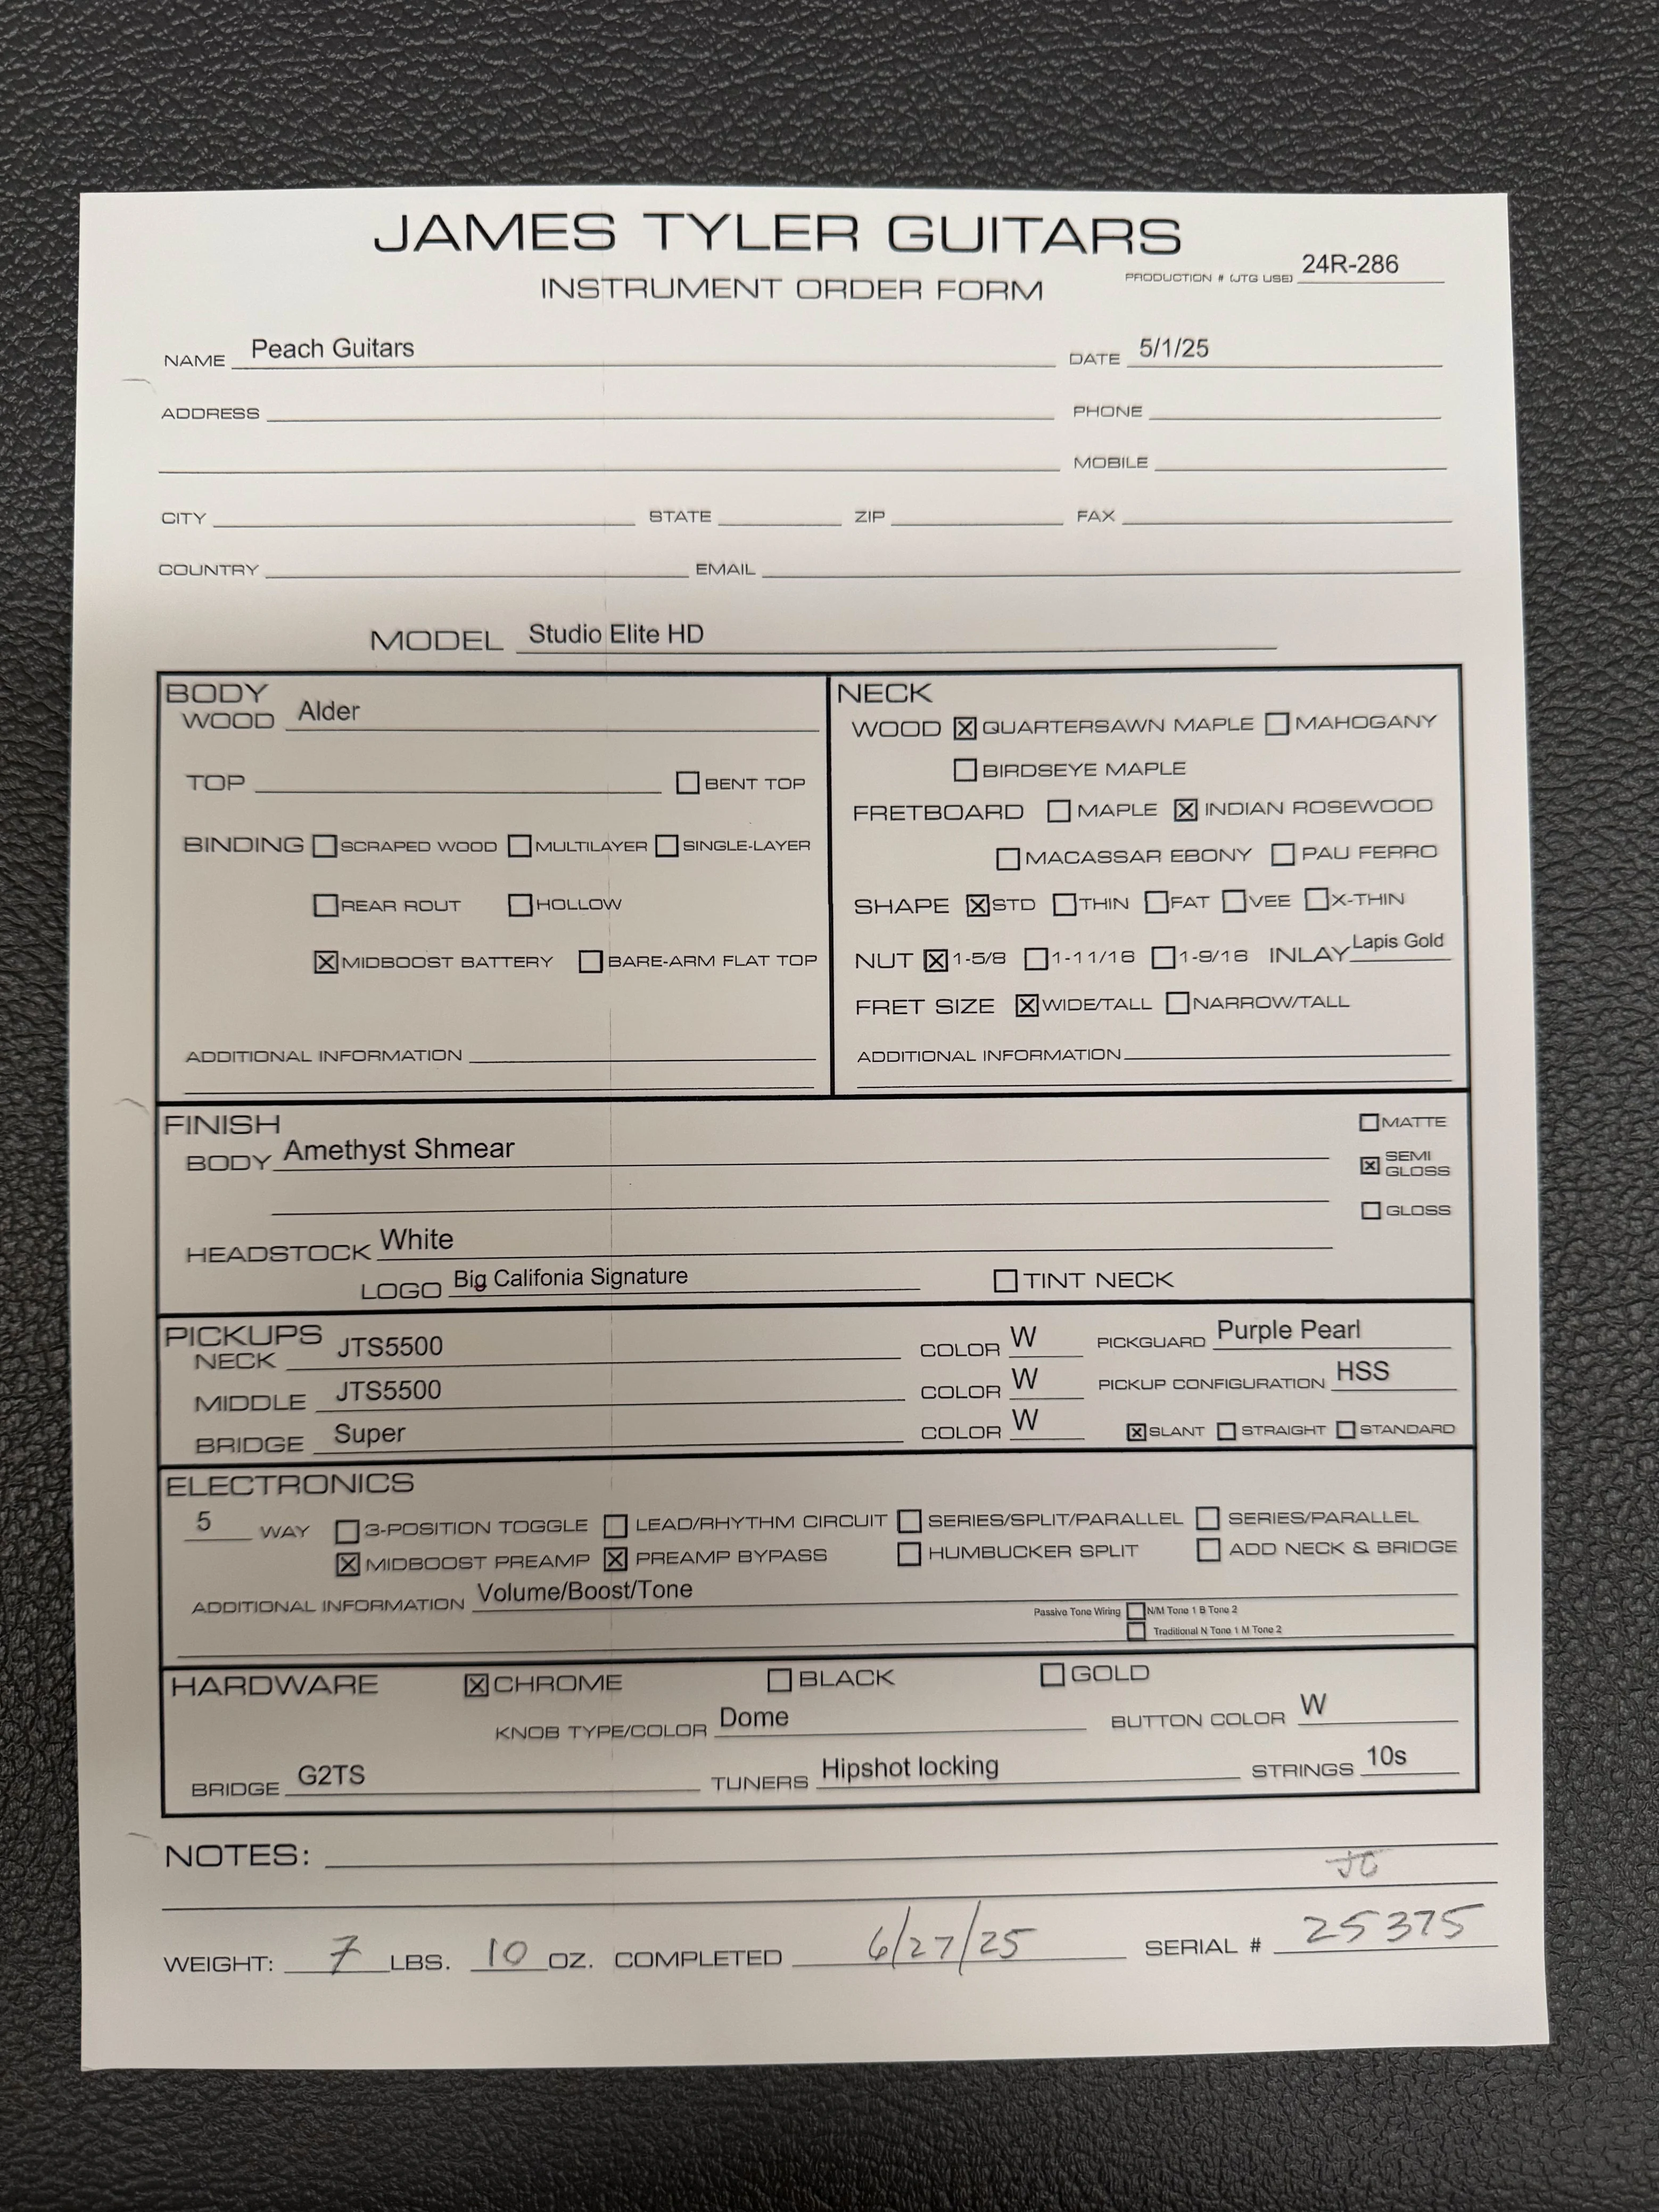 JAMES TYLER GUITARS
INSTRUMENT ORDER FORM
PRODUCTION # (JTG USE) 24R-286
NAME Peach Guitars DATE 5/1/25
ADDRESS PHONE
MOBILE
CITY STATE ZIP FAX
COUNTRY EMAIL
MODEL Studio Elite HD
BODY
WOOD Alder
TOP BENT TOP
BINDING SCRAPED WOOD MULTILAYER SINGLE-LAYER
REAR ROUT HOLLOW
☒ MIDBOOST BATTERY BARE-ARM FLAT TOP
ADDITIONAL INFORMATION
NECK
WOOD ☒ QUARTERSAWN MAPLE MAHOGANY
BIRDSEYE MAPLE
FRETBOARD MAPLE ☒ INDIAN ROSEWOOD
MACASSAR EBONY PAU FERRO
SHAPE ☒ STD THIN FAT VEE X-THIN
NUT ☒ 1-5/8 1-11/16 1-9/16 INLAY Lapis Gold
FRET SIZE ☒ WIDE/TALL NARROW/TALL
ADDITIONAL INFORMATION
FINISH
BODY Amethyst Shmear
MATTE
☒ SEMI GLOSS
GLOSS
HEADSTOCK White
LOGO Big Califonia Signature TINT NECK
PICKUPS
NECK JTS5500 COLOR W PICKGUARD Purple Pearl
MIDDLE JTS5500 COLOR W PICKUP CONFIGURATION HSS
BRIDGE Super COLOR W ☒ SLANT STRAIGHT STANDARD
ELECTRONICS
5 WAY 3-POSITION TOGGLE LEAD/RHYTHM CIRCUIT SERIES/SPLIT/PARALLEL SERIES/PARALLEL
☒ MIDBOOST PREAMP ☒ PREAMP BYPASS HUMBUCKER SPLIT ADD NECK & BRIDGE
ADDITIONAL INFORMATION Volume/Boost/Tone
Passive Tone Wiring N/M Tone 1 B Tone 2
Traditional N Tone 1 M Tone 2
HARDWARE ☒ CHROME BLACK GOLD
KNOB TYPE/COLOR Dome BUTTON COLOR W
BRIDGE G2TS TUNERS Hipshot locking STRINGS 10s
NOTES:
WEIGHT: 7 LBS. 10 OZ. COMPLETED 6/27/25 SERIAL # 25375